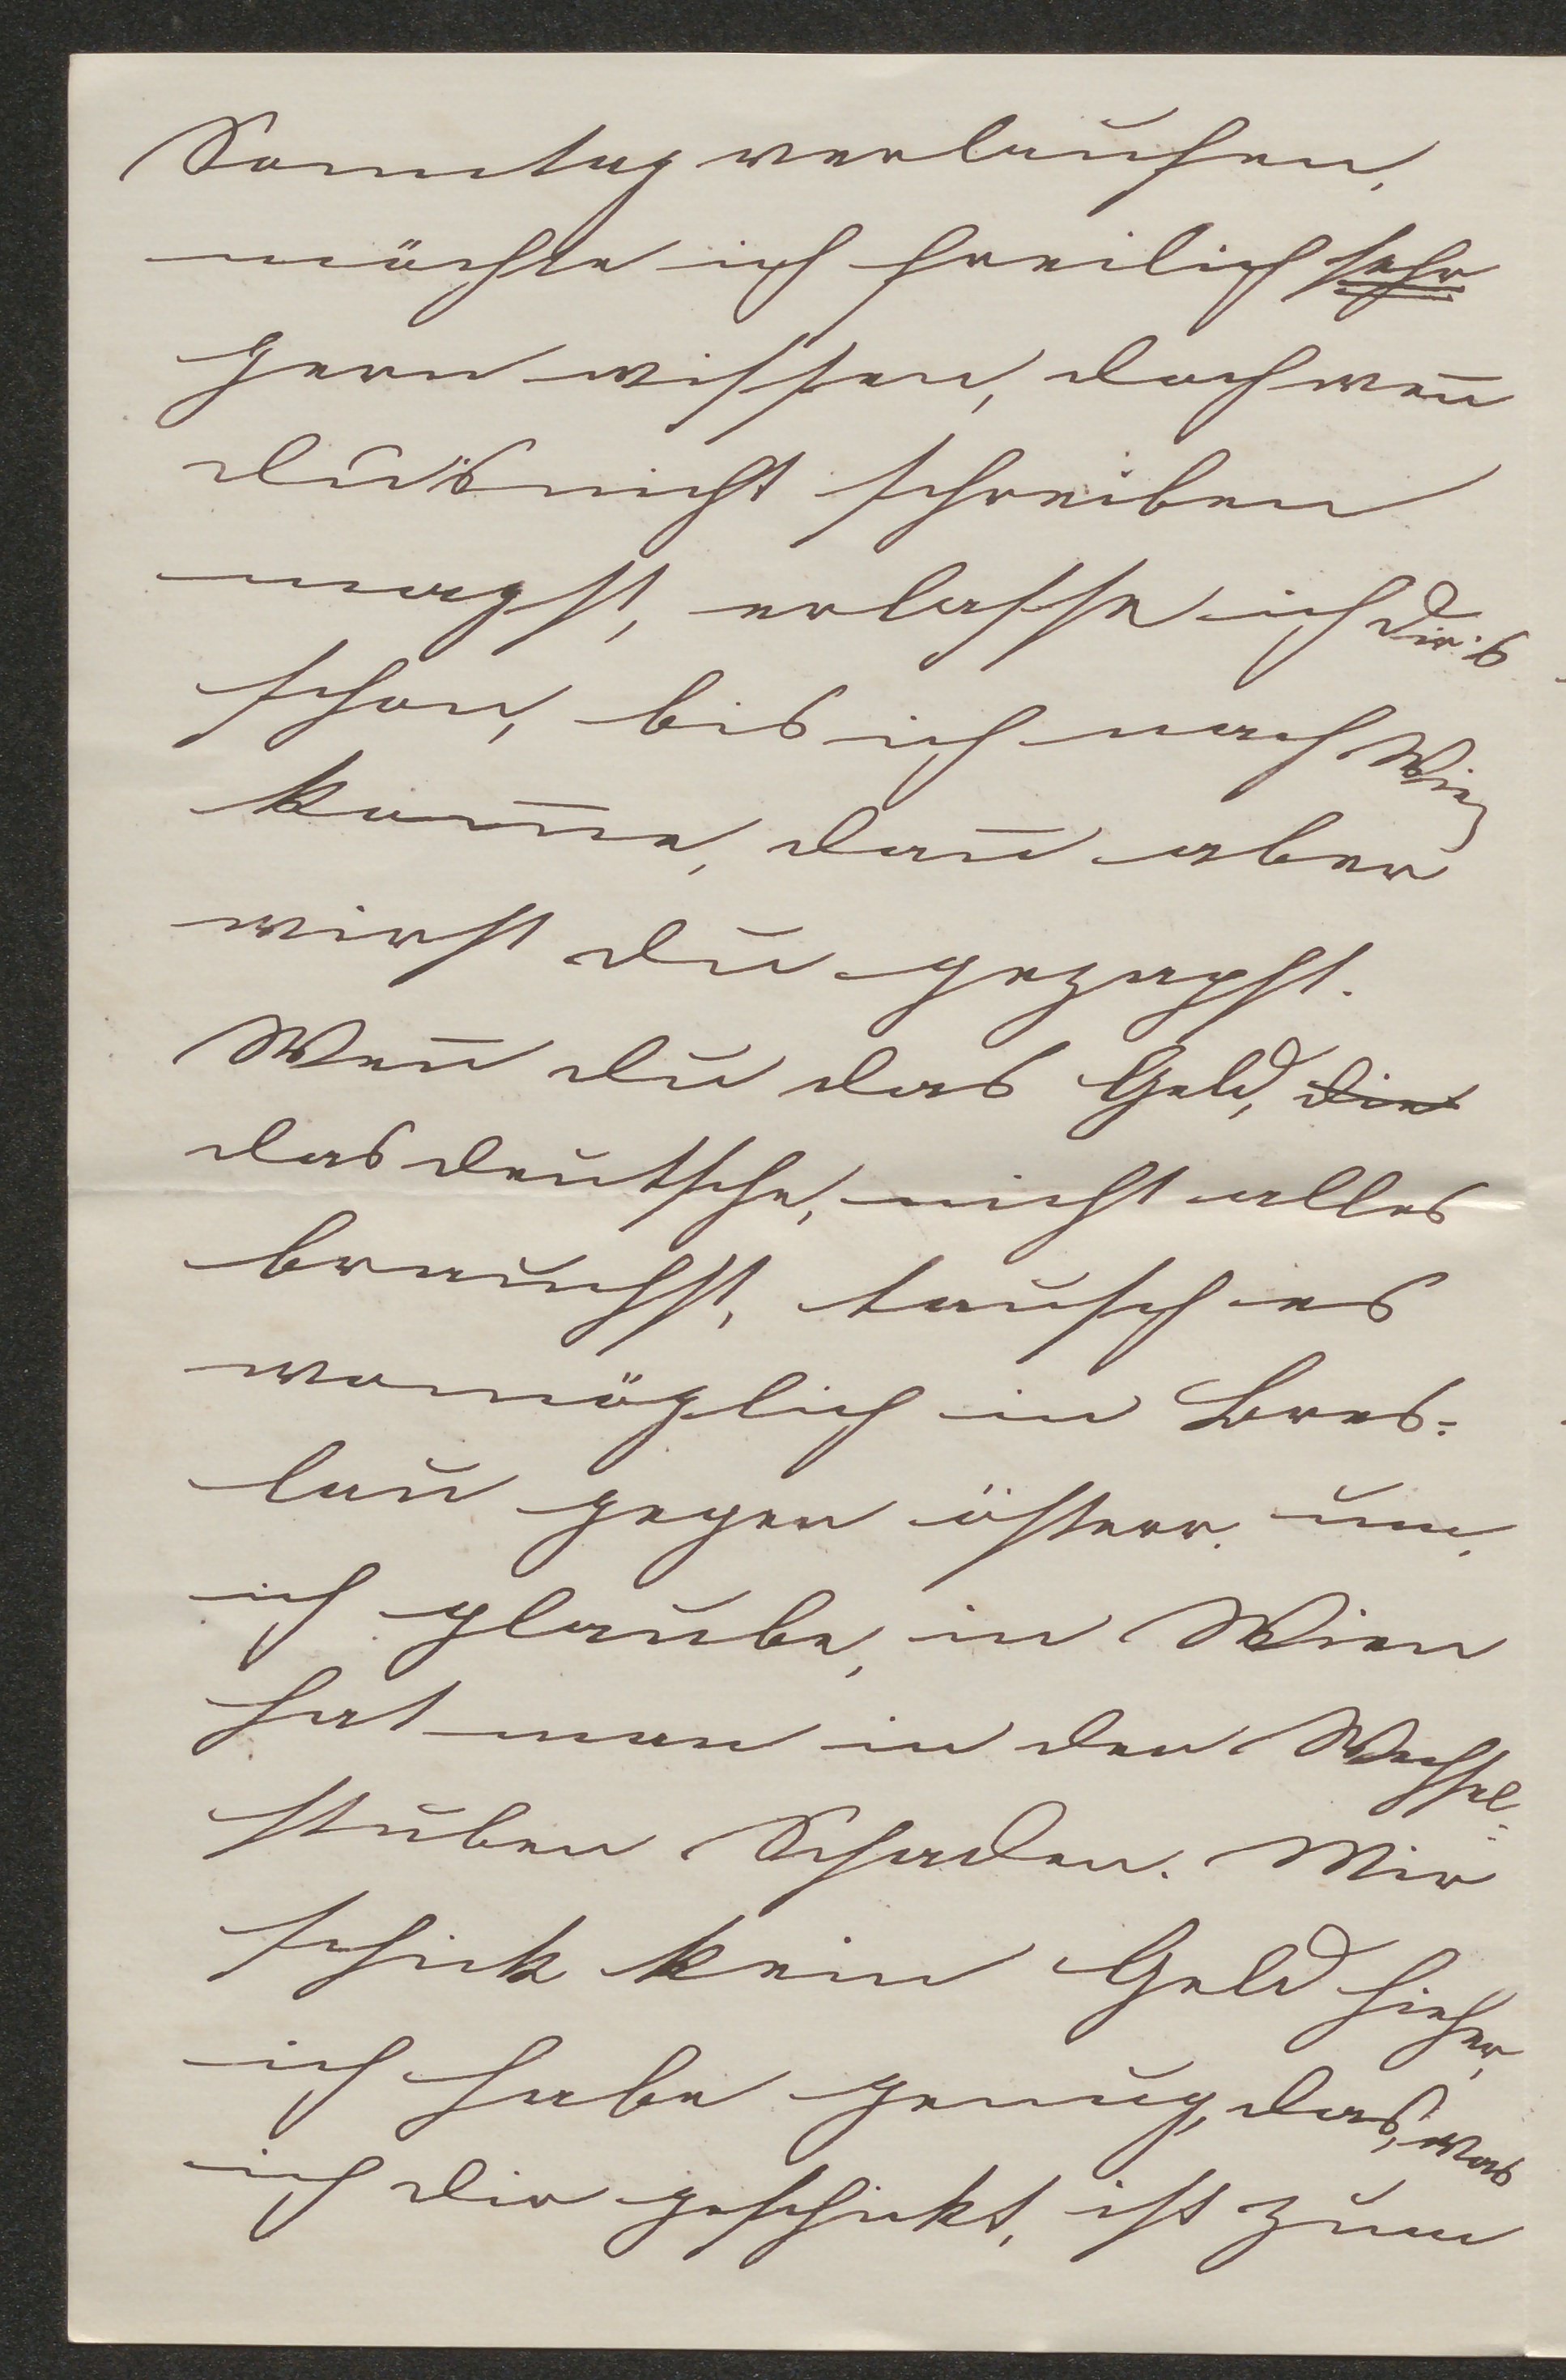 Sonntag verlaufen,
möchte ich freilich sehr
gern wissen, doch weñ
du's nicht schreiben
magst, erlasse ich dir's
schon, bis ich nach Wien
kom̄e, dañ aber
wirst du gezapft.
Weñ du das Geld, die
das deutsche, nicht alles
brauchst, tausch es
womöglich in Bres=
lau gegen österr. um,
ich glaube, in Wien
hat man in den Wechsel=
stuben Schaden. Mir
schick kein Geld hieher,
ich habe genug, das, was
ich dir geschickt, ist zum